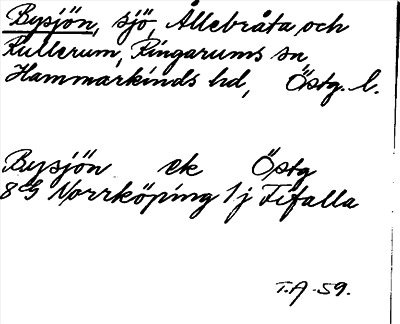 Bysjön, sjö, Ållebråta och
Kullerum, Ringarums sn,
Hammarkinds hd, Östg. l.
Bysjön ek Östg
8G Norrköping 1j Fifalla
T.A. -59.